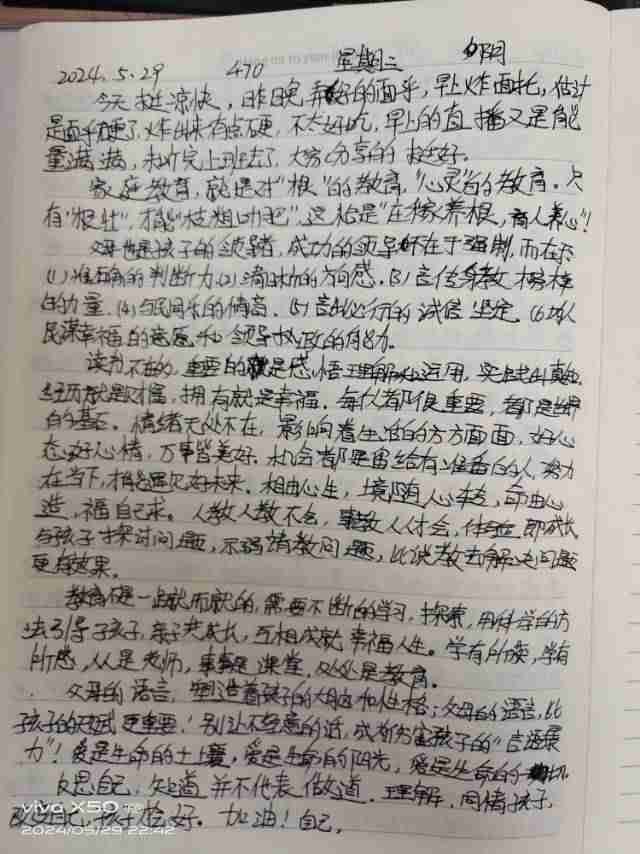 2024.5.29 470 星期三 阴
今天挺凉快，昨晚弄好的面子，早上炸面托，估计
是面子硬了，炸出来有点硬，不太好吃，早上的直播又是能
量满满，未听完上班去了，大家分享的挺好。
家庭教育，就是对"根"的教育，"心灵"的教育。只
有"根壮"，才能"枝粗叶肥"，这恰是"在稼养根，育人养心"！
父母也是孩子的领导者，成功的领导不在于强制，而在于
(1)准确的判断力(2)清晰的方向感，(3)言传身教，榜样
的力量，(4)与民同乐的情商，(5)言出必行的诚信坚定，(6)为人
民谋幸福的意愿和领导执政的能力。
读书不在的，重要的就是感悟理解和运用，实践出真知
经历就是财富，拥有就是幸福。每代都很重要，都是世界
的基石。情绪无处不在，影响着生活的方方面面，好心
态好心情，万事皆美好。机会都是留给有准备的人，努力
在当下，才能遇见好未来。相由心生，境随心转，命由心
造，福自己求。人教人教不会，事教人才会，体验即成长
与孩子探讨问题，示弱请教问题，比说教去解决问题
更有效果。
教育不是一蹴而就的，需要不断的学习，探索，用科学的方
法引导孩子，亲子共成长，互相成就幸福人生。学有所获，学有
所感，人人是老师，事事是课堂，处处是教育。
父母的语言，塑造着孩子的大脑和性格；父母的语言，比
孩子的考试更重要！别让不经意的话，成为伤害孩子的"言语暴
力"！爱是生命的土壤，爱是生命的阳光，爱是生命的一切
反思自己，知道并不代表做道。理解，同情孩子，
改变自己，孩子恰好。加油！自己。
vivo X50
2024/05/29 22:42